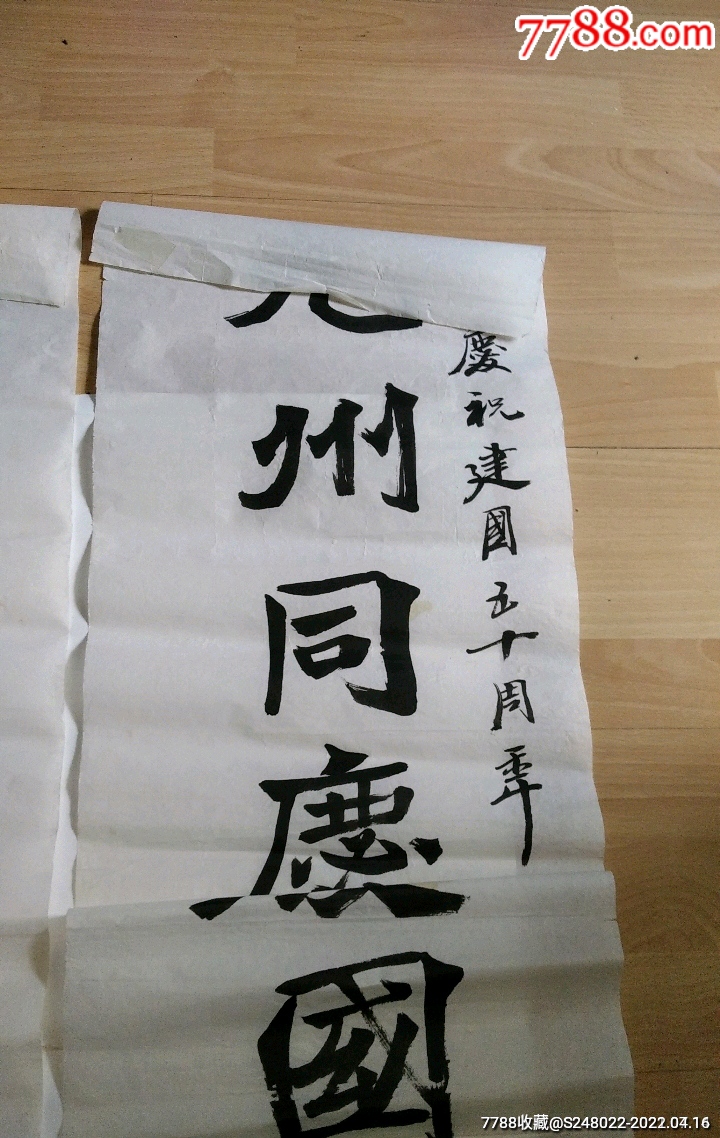 7788.com
慶祝建國五十周年
州同慶國
7788收藏@S248022-2022.04.16